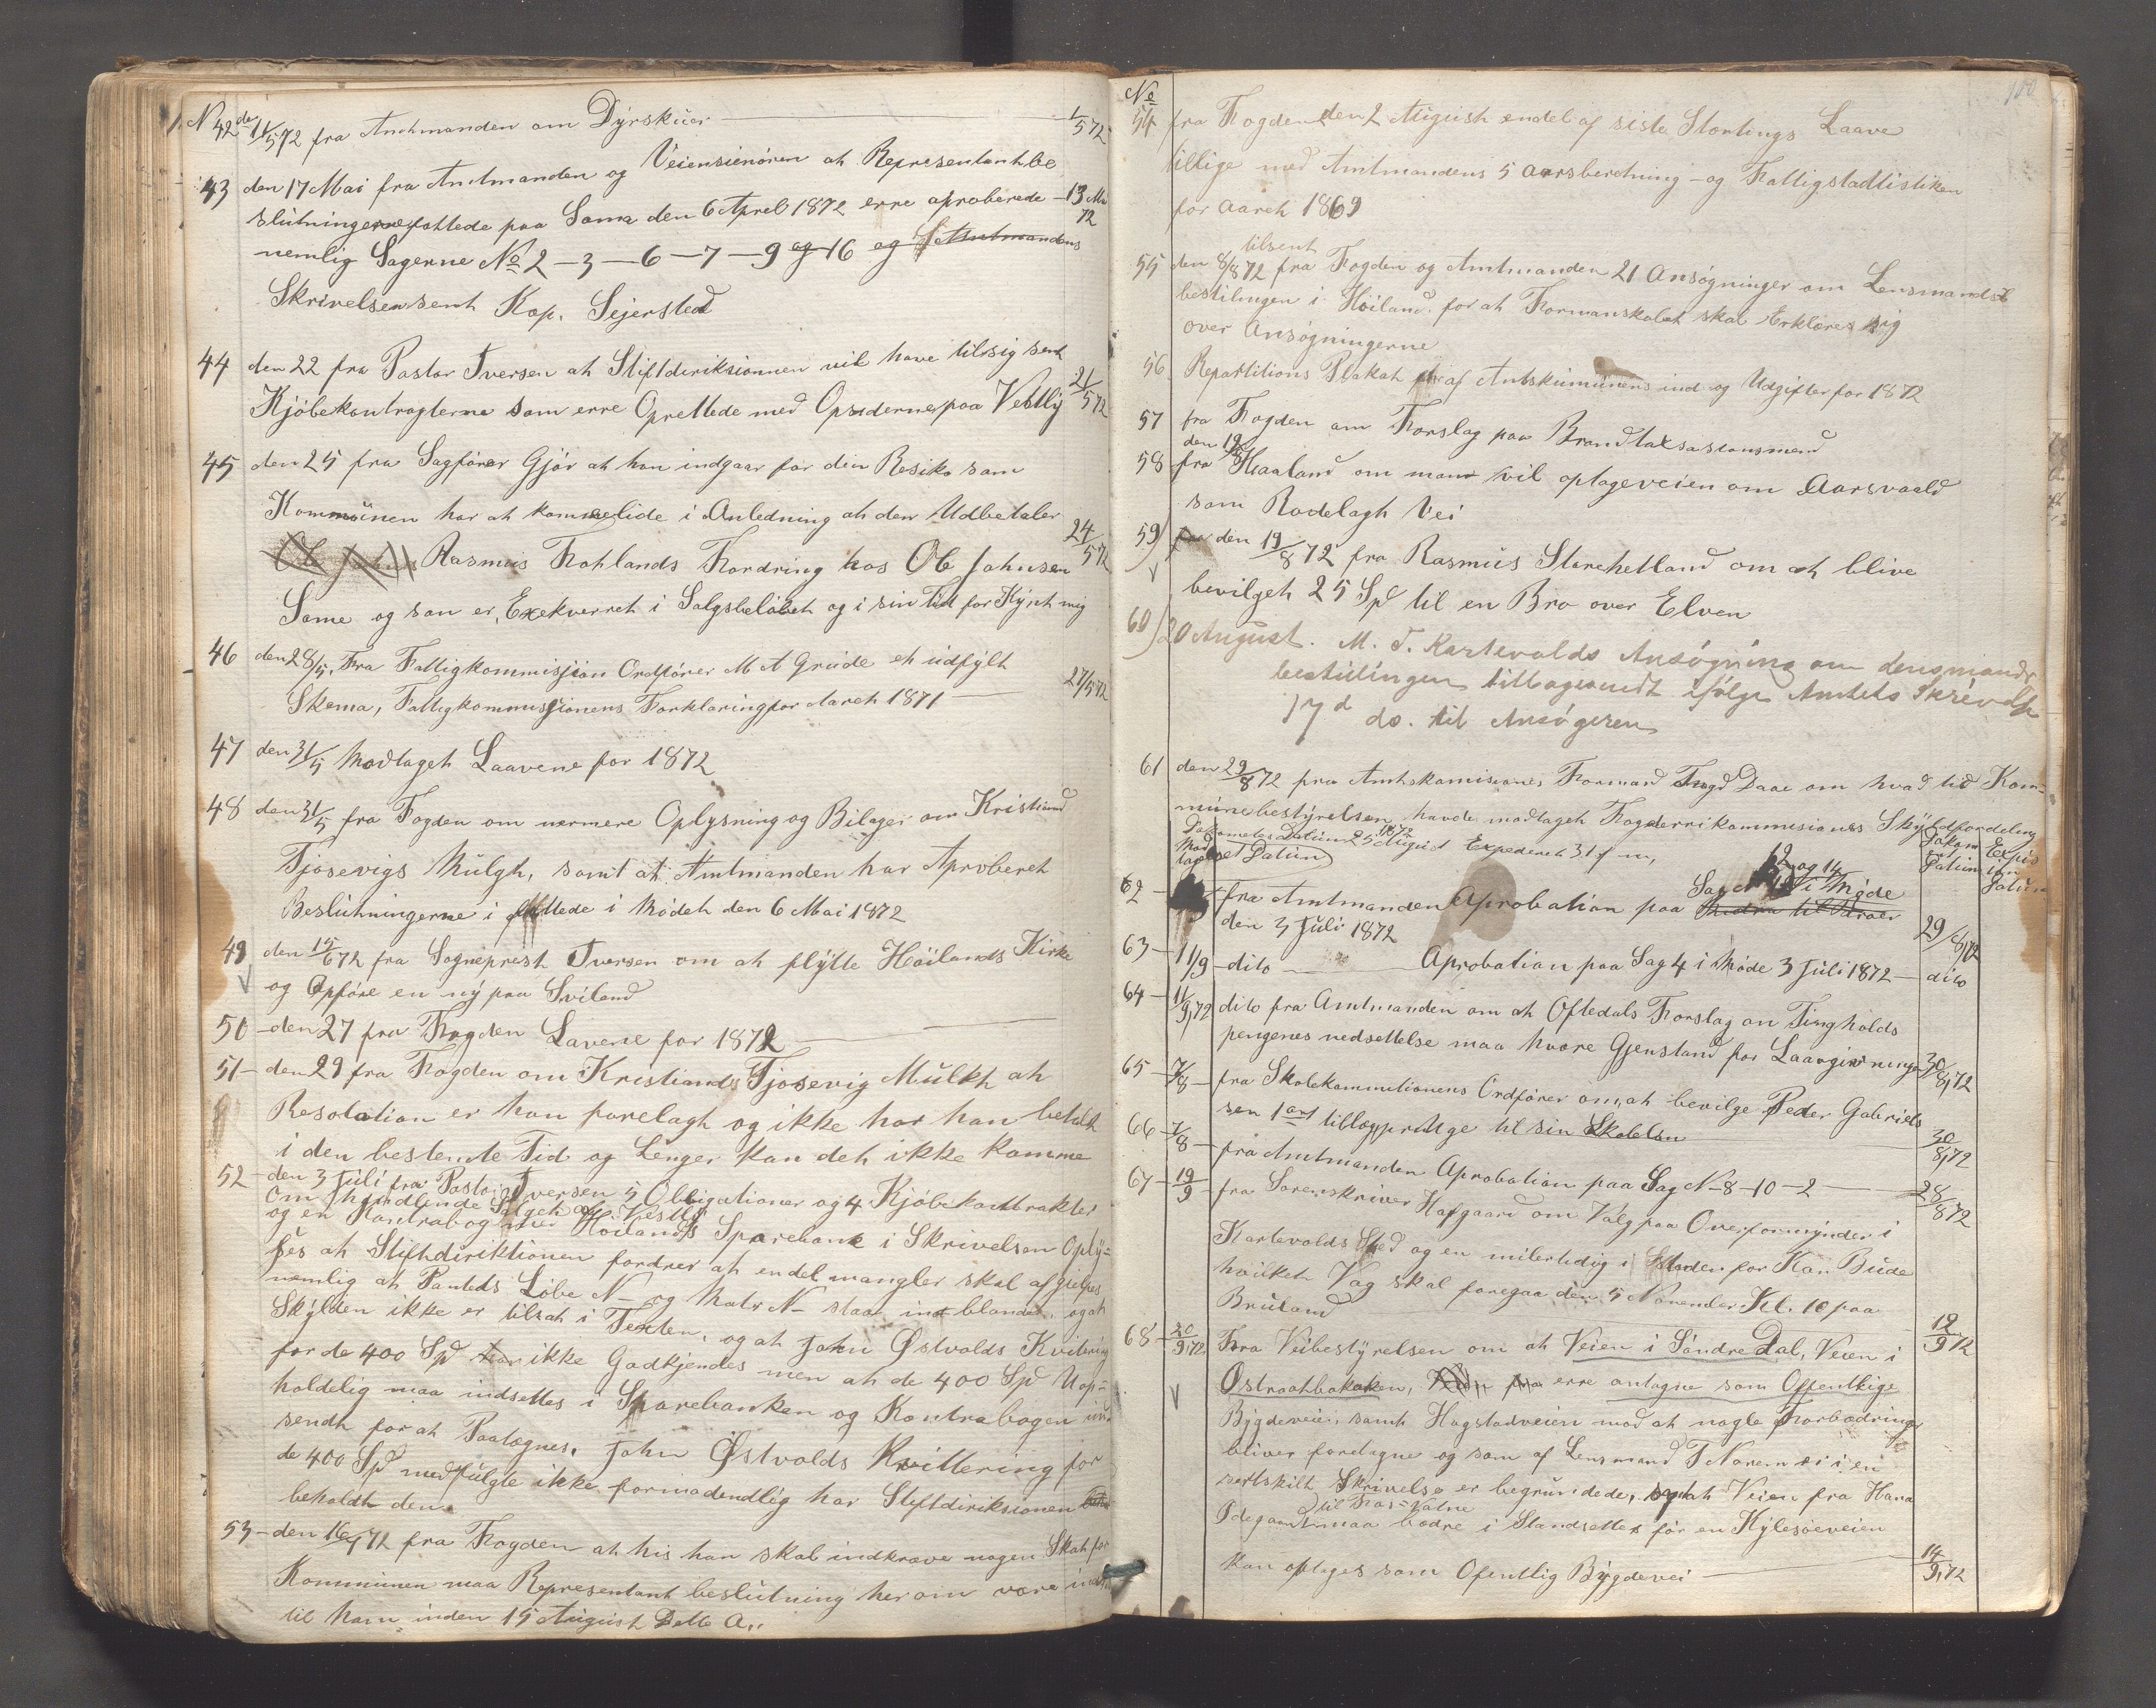 N 42 den 11/5 72 fra Amtmanden om Dyrskuer — 1/5 72
43 den 17 Mai fra Amtmanden og Veiensienören at Representantbe
slutningerne fattede paa Soma den 6 April 1872 erre aproberede — 13 Mai 72
nemlig Sagerne No 2 — 3 — 6 — 7 — 9 og 16 og Amtmandens
Skrivelse sent Kap. Sejersted
44 den 22 fra Pastor Iversen at Stiftdiriksionnen vil have tilsig sent
Kjöbekontragterne som erre Oprettede med Opsiderne paa Vestly 21/5 72
45 den 25 fra Sagförer Gjör at han indgaar for din Resiko som
Kommunen har at komme lide i Anledning at den Udbetaler
Rasmus Fohlands Fordring hos Ole Johnsen 24/5 72
Some og son er Exekverret i Salgsbelöbet og i sin Tid forKynt mig
46 den 28/5. Fra Fattigkommissjion Ordförer M A Grude et udfylt
Skema, Fattigkommissjionens Forklaring for Aaret 1871 — 27/5 72
47 den 31/5 Modtaget Laavene for 1872
48 den 31/5 fra Fogden om nermere Oplysning og Bilager om Kristiand
Tjosevigs Mulgt, samt at Amtmanden har Aproberet
Beslutningerne i fattede i Mödet den 6 Mai 1872
49 den 15/6 72 fra Sogneprest Iversen om at flytte Höilands Kirke
og Opföre en ny paa Sviland
50 — den 27 fra Fogden Lavene for 1872 —
51 — den 29 fra Fogden om Kristiands Tjosevig Mulkt at
Resolution er han forelagt og ikke har han betalt
i den bestemte Tid og Lenger kan det ikke komme
52 — den 3 Juli fra Pastor Iversen 5 Obligationer og 4 Kjöbekontrakter
om thendlinde Salget af Vestly
og en Kontrabog med Höilands Sparebank i Skrivelsen Oply=
ses at Stiftdiriktionen fordrer at endel mangler skal afhielpes
nemlig at Panteds Löbe N — og Matr N — staar ind blandet, og at
Skylden ikke er tilsat i Texten, og at John Østvolds Kvitering
for de 400 Spd ikke Godkjendes men at de 400 Spd Uop=
holdelig maa indsettes i Sparebanken og Kontrabogen ind
sendt for at Paategnes. John Østvolds Kvittering for
de 400 Spd medfulgte ikke formodendtlig har Stiftdiriksionen
beholdt den
53 — den 16/7 72 fra Fogden at his han skal indkræve nogen Skat for
Kommunen maa Representant beslutning her om være
til ham inden 15 August Dette A..
100
No
54 fra Fogden den 2 August endel af siste Stortings Laave
tillige med Amtmandens 5 aarsberetning — og Fattigstadtistiken
for aaret 1869
tilsent
55 den 8/8 72 fra Fogden og Amtmanden 21 Ansögninger om Lensmands
bestilingen i Höiland for at Formanskabet skal Erklære sig
over Ansögningerne
56 Repartitions Plakat af Amtskumunens ind og Udgifter for 1872
57 fra Fogden om Forslag paa Brandtaksasionsmend
den 19/8
58 fra Haaland om man vil optage veien om Aarsvaald
som Rodelagt Vei
59) den 19/8 72 fra Rasmus Storehetland om at blive
bevilget 25 Spd til en Bro over Elven
60) 20 August. M. T. Kartevolds Ansögning om Lensmands
bestillingen tilbagesendt ifölge Amtets Skrivelse
17d do. til Ansögeren
61 den 29/8 72 fra Amtskomisiones Formand Fogd Daae om hvad tid Kom=
munebestyrelsen havde modtaget Fogderrikommisiones Skyldfordeling
Dokumetes Datum 25 August 1872 Expederet 31 f m,
Mod taget Datum
Dokom ent Datum Expis ion Datum
62 — fra Amtmanden Aprobation paa Sag 12 og 14 i Möde
den 3 Juli 1872 29/8 72
63 — 11/9 — dito — Aprobation paa Sag 4 i Möde 3 Juli 1872 — dito
64 — 11/9 72 dito fra Amtmanden om at Oftedals Forslag on Tingholds
pengenes nedsettelse maa hvore Gjenstand for Laavgivninge 30/8 72
65 — 7/8 — fra Skolekommitionens Ordförer om at bevilge Peder Gabriels
sen 1 aars tillæggsprilige til sin Skolelön 30/8 72
66 — 7/8 — fra Amtmanden Aprobation paa Sag N — 8 — 10 — 2 — 28/8 72
67 — 19/9 — fra Sorenskriver Hofgaard om Valg paa Overformynder i
Kartevolds Sted og en milertidig i Steden for Kan Bude
hvilket Vag skal foregaa den 5 November Kl. 10 paa
Bruland 12/9 72
68 — 20/9 72 Fra Veibestyrelsen om at Veien i Söndre Dal, Veien i
Østraatbakaken, erre antagne som Offentlige
Bygdeveie, samt Hogstadveien mod at nogle Forbedringer
bliver foretagne og som af Lensmand T Norem er i en
sertskilt Skrivelse er begrundede, og at Veien fra Hana
til Fos=Vatne
Ödegaard maa bedre i Standsettes för en Kylesöeveien
kan optages som Ofentlig Bygdevei — 14/9 72